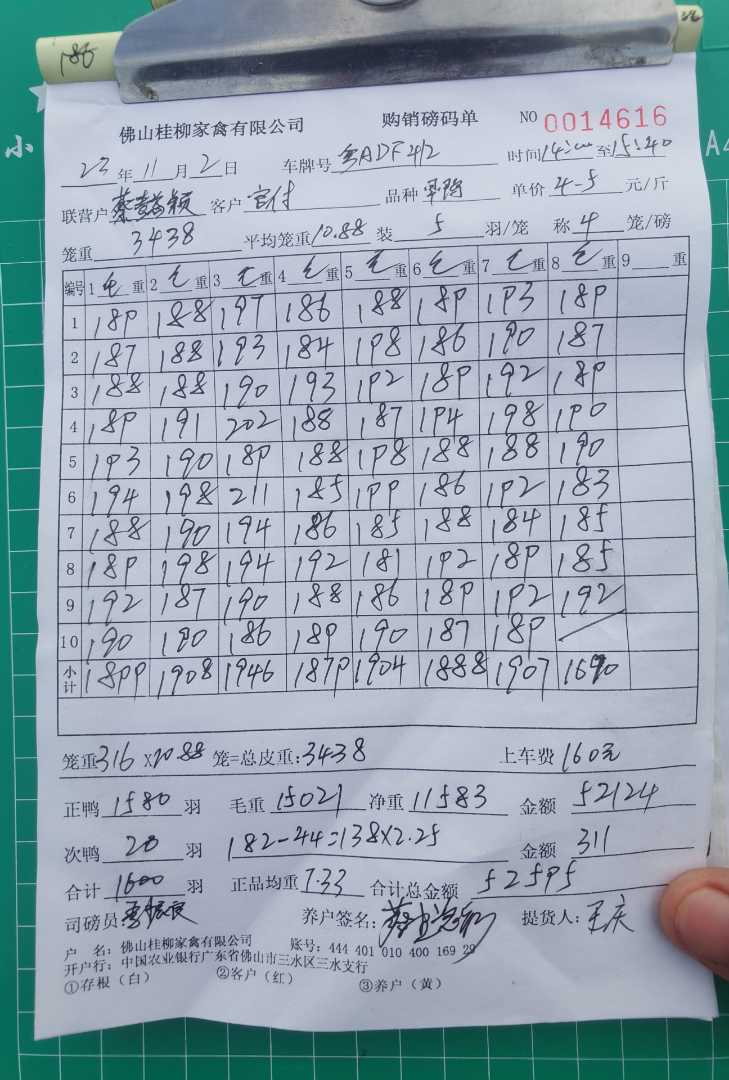 186
小
A4
佛山桂柳家禽有限公司 购销磅码单 NO 0014616
23年11月2日 车牌号 粤ADF412 时间14:00至15:40
联营户 客户 品种 单价 4-5 元/斤
笼重 3438 平均笼重10.88 装 5 羽/笼 称 4 笼/磅
编号 1 毛 重 2 毛 重 3 毛 重 4 毛 重 5 毛 重 6 毛 重 7 毛 重 8 毛 重 9 重
1 189 188 197 186 188 189 193 189
2 187 188 193 184 198 186 190 187
3 188 188 190 193 192 189 192 189
4 189 191 202 188 187 194 198 190
5 193 190 189 188 198 188 188 190
6 194 198 211 185 199 186 192 183
7 188 190 194 186 185 188 184 185
8 189 198 194 192 181 192 189 185
9 192 187 190 188 186 189 192 192
10 190 190 186 189 190 187 189
小计 1899 1908 1946 1879 1904 1888 1907 1690
笼重316 X10.88 笼=总皮重:3438 上车费 160元
正鸭 1580 羽 毛重 15021 净重 11583 金额 52124
次鸭 20 羽 182-44=138X2.25 金额 311
合计 1600 羽 正品均重 7.33 合计总金额 52595
司磅员: 养户签名: 提货人: 王庆
户 名: 佛山桂柳家禽有限公司 账号: 444 401 010 400 169 29
开户行: 中国农业银行广东省佛山市三水区三水支行
①存根(白) ②客户(红) ③养户(黄)